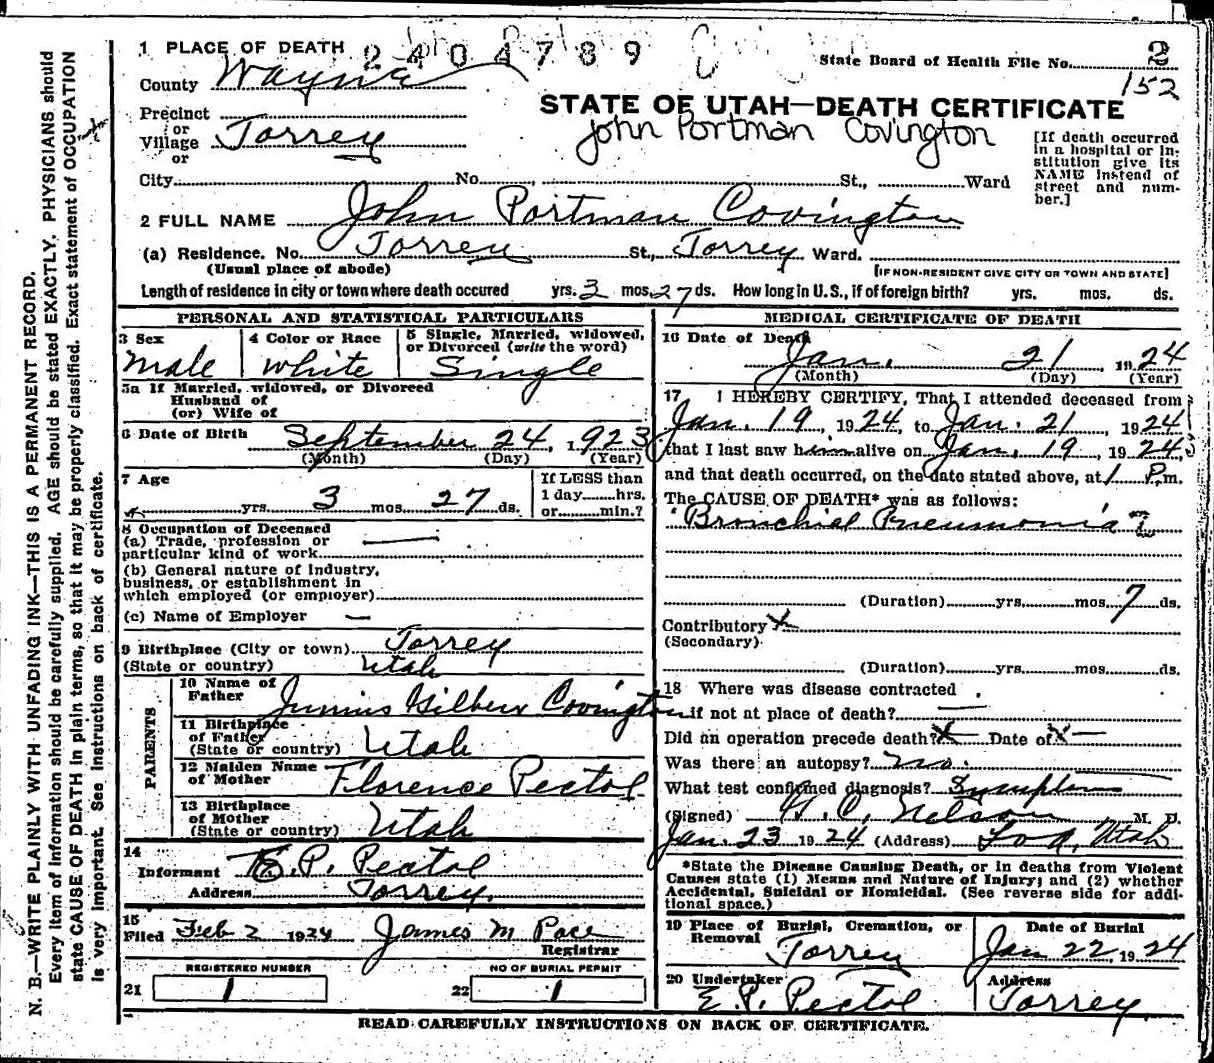 1 PLACE OF DEATH 2404789
State Board of Health File No. 2
152
County Wayne
STATE OF UTAH—DEATH CERTIFICATE
John Portman Covington
Precinct
or
Village Torrey
or
[If death occurred in a hospital or institution give its NAME instead of street and number.]
City No. St., Ward
2 FULL NAME John Portman Covington
(a) Residence. No. Torrey St., Torrey Ward.
(Usual place of abode) [IF NON-RESIDENT GIVE CITY OR TOWN AND STATE]
Length of residence in city or town where death occured yrs. 3 mos. 27 ds. How long in U.S., if of foreign birth? yrs. mos. ds.
PERSONAL AND STATISTICAL PARTICULARS
3 Sex
Male
4 Color or Race
White
5 Single, Married, widowed,
or Divorced (write the word)
Single
5a If Married, widowed, or Divorced
Husband of
(or) Wife of
6 Date of Birth September 24, 1923
(Month) (Day) (Year)
7 Age
yrs. 3 mos. 27 ds.
If LESS than
1 day hrs.
or min.?
8 Occupation of Deceased
(a) Trade, profession or
particular kind of work —
(b) General nature of Industry,
business, or establishment in
which employed (or employer)
(c) Name of Employer —
9 Birthplace (City or town) Torrey
(State or country) Utah
PARENTS
10 Name of
Father Junius Gilbert Covington
11 Birthplace
of Father
(State or country) Utah
12 Maiden Name
of Mother Florence Pectol
13 Birthplace
of Mother
(State or country) Utah
14
Informant E.P. Pectol
Address Torrey.
15
Filed Feb 2 1924 James M Pace
Registrar
REGISTERED NUMBER NO OF BURIAL PERMIT
21 1 22 1
MEDICAL CERTIFICATE OF DEATH
16 Date of Death
Jan. 21 1924
(Month) (Day) (Year)
17 I HEREBY CERTIFY, That I attended deceased from
Jan. 19, 1924, to Jan. 21, 1924
that I last saw him alive on Jan. 19, 1924,
and that death occurred, on the date stated above, at 1 P.m.
The CAUSE OF DEATH* was as follows:
Bronchial Pneumonia?
(Duration) yrs. mos. 7 ds.
Contributory X
(Secondary)
(Duration) yrs. mos. ds.
18 Where was disease contracted
if not at place of death? —
Did an operation precede death? X Date of X —
Was there an autopsy? no.
What test confirmed diagnosis? Symptoms
(Signed) Nelson M. D.
Jan. 23 1924 (Address) Loa, Utah
*State the Disease Causing Death, or in deaths from Violent
Causes state (1) Means and Nature of Injury; and (2) whether
Accidental, Suicidal or Homicidal. (See reverse side for addi-
tional space.)
19 Place of Burial, Cremation, or
Removal Torrey
Date of Burial
Jan 22, 1924
20 Undertaker
E. P. Pectol
Address
Torrey.
READ CAREFULLY INSTRUCTIONS ON BACK OF CERTIFICATE.
N. B.—WRITE PLAINLY WITH UNFADING INK—THIS IS A PERMANENT RECORD.
Every item of information should be carefully supplied. AGE should be stated EXACTLY, PHYSICIANS should
state CAUSE OF DEATH in plain terms, so that it may be properly classified. Exact statement of OCCUPATION
is very important. See instructions on back of certificate.